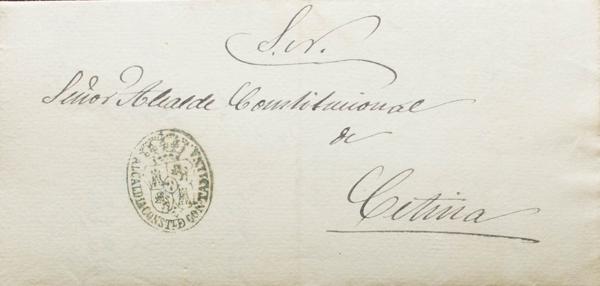 S. N.
Señor Alcalde Constitucional
de
Cetina
ALCALDIA CONST. D